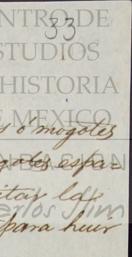 33
NTRO DE
ESTUDIOS
HISTORIA
E MEXICO
s ó mogotes
gotes espa-
itar la
erlos Slim
para huir